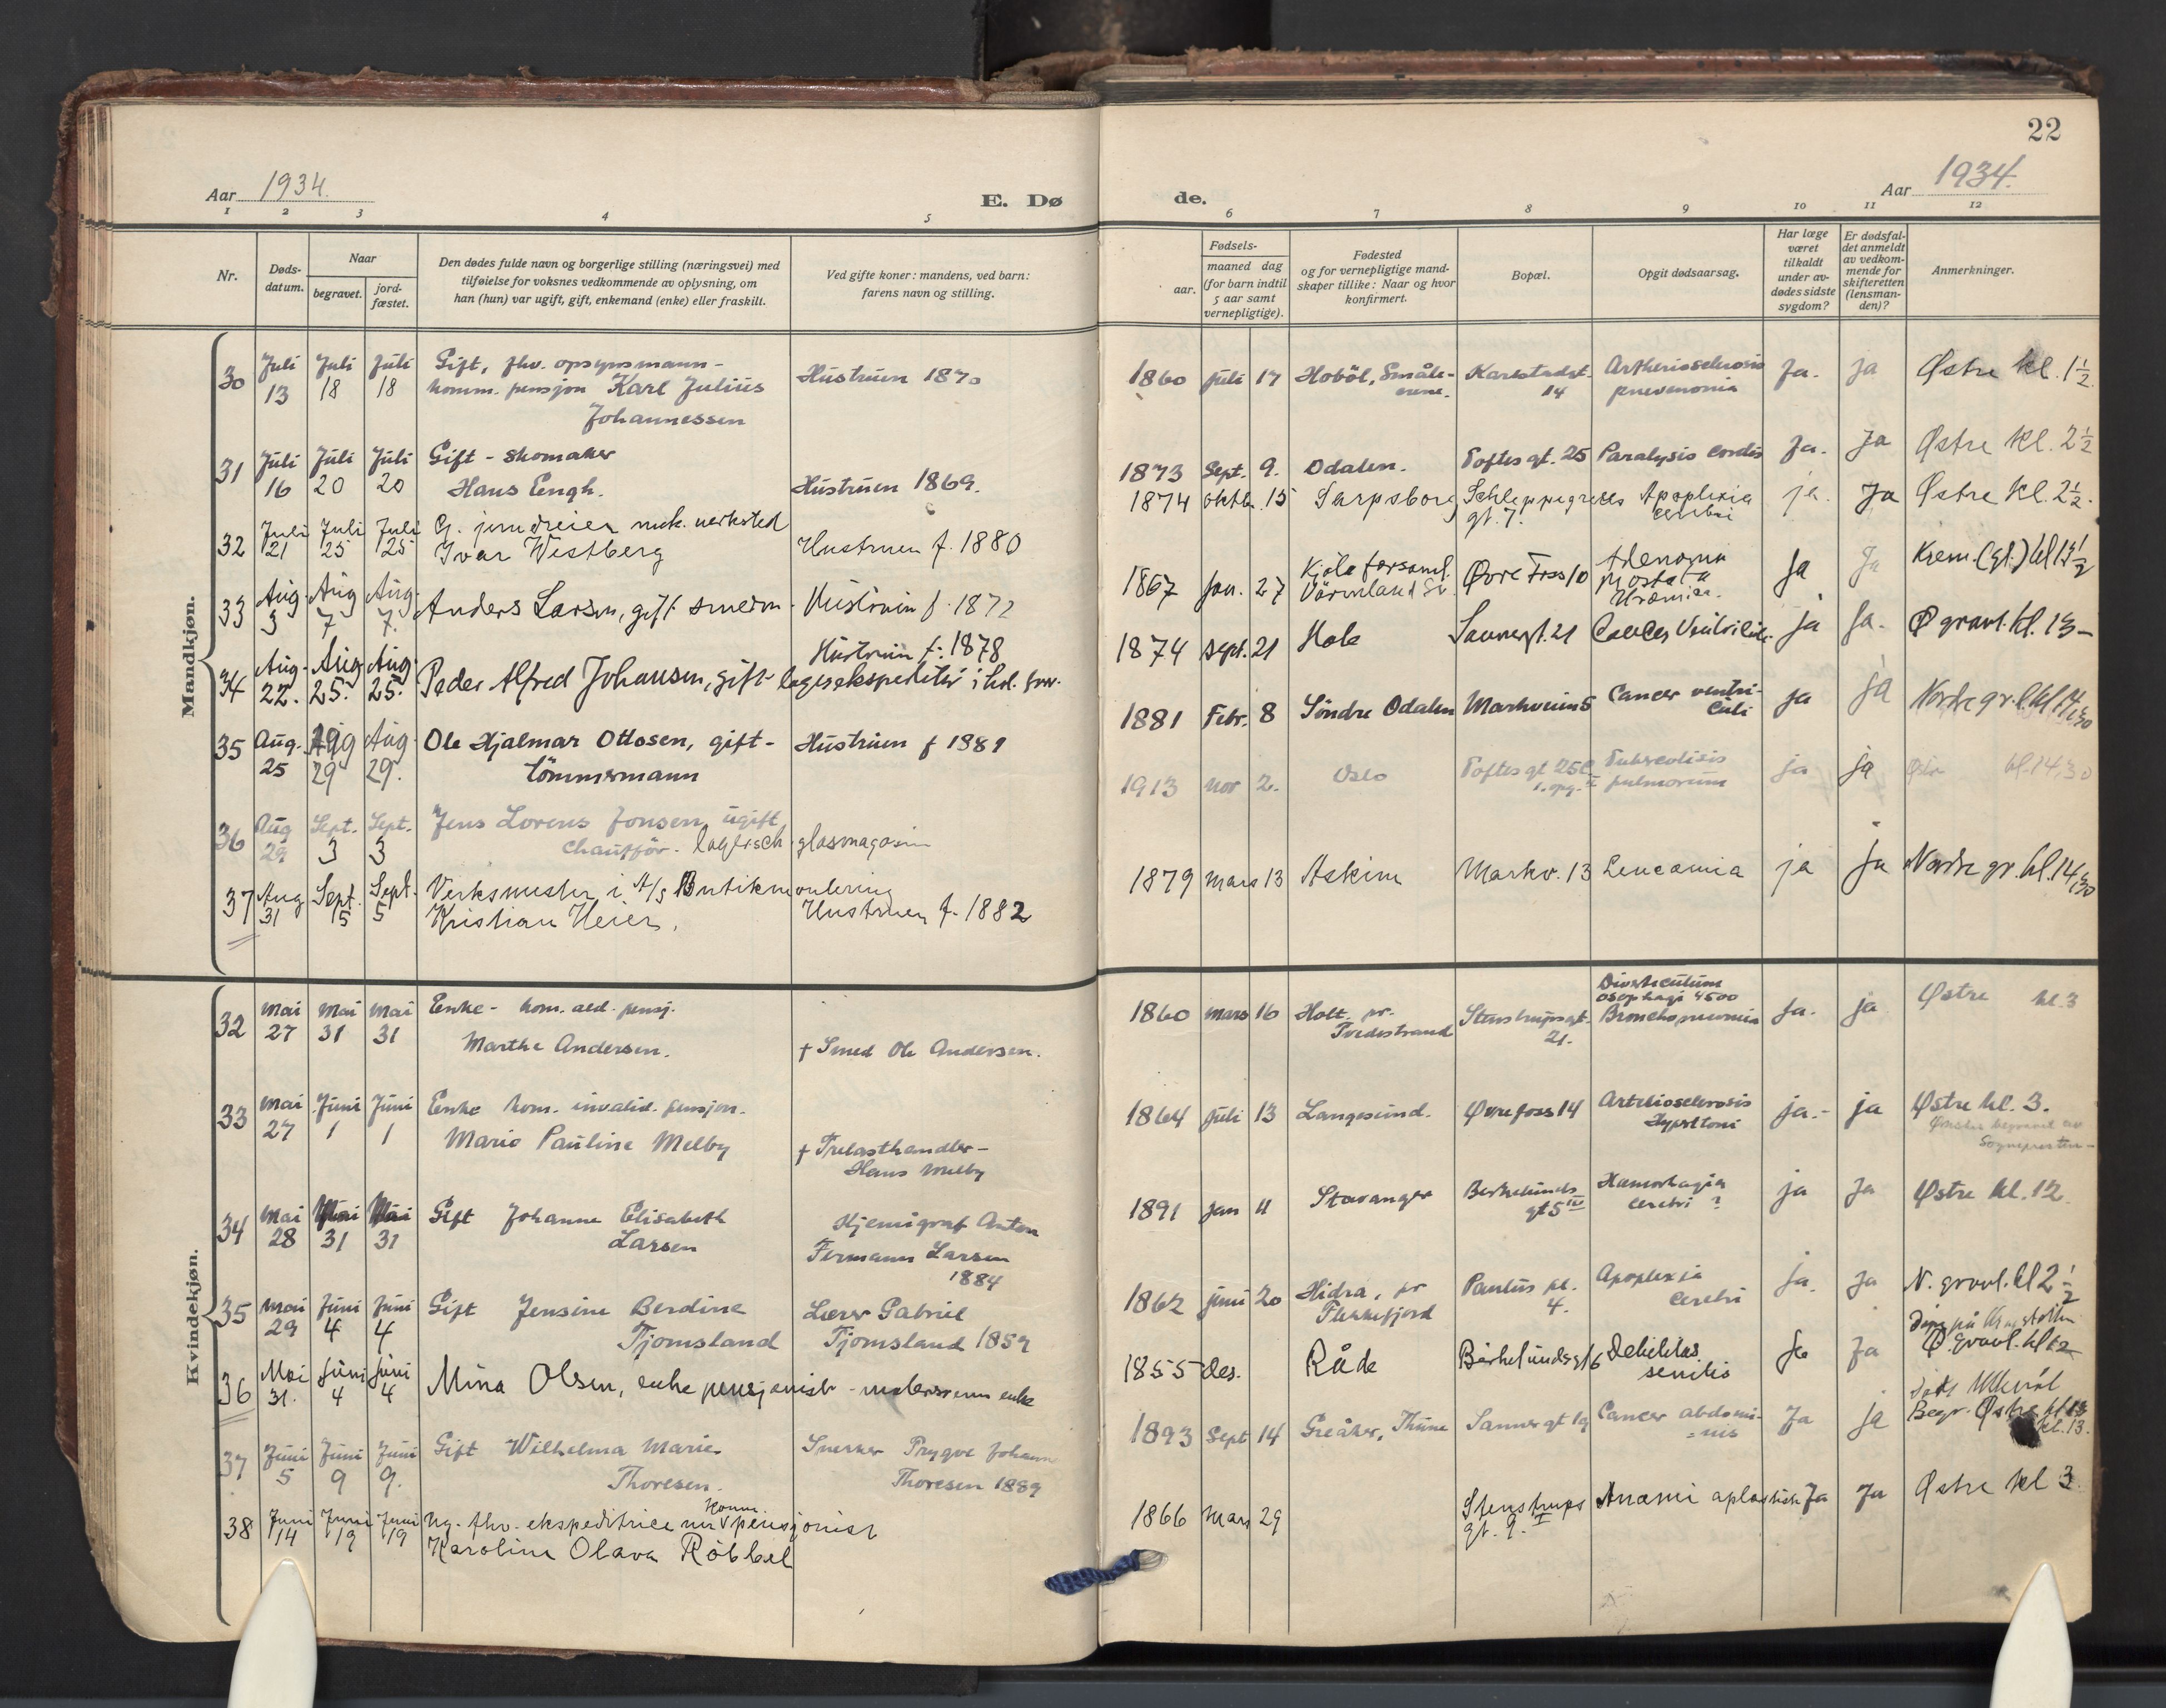 22
Aar 1934.
E. Dø
de.
Aar 1934.
1 2 3 4 5 6 7 8 9 10 11 12
Nr.
Døds-
datum.
Naar
begravet.
jord-
fæstet.
Den dødes fulde navn og borgerlige stilling (næringsvei) med
tilføielse for voksnes vedkommende av oplysning, om
han (hun) var ugift, gift, enkemand (enke) eller fraskilt.
Ved gifte koner: mandens, ved barn:
farens navn og stilling.
Fødsels-
aar.
maaned dag
(for barn indtil
5 aar samt
vernepligtige).
Fødested
og for vernepligtige mand-
skaper tillike: Naar og hvor
konfirmert.
Bopæl.
Opgit dødsaarsag.
Har læge
været
tilkaldt
under av-
dødes sidste
sygdom?
Er dødsfal-
det anmeldt
av vedkom-
mende for
skifteretten
(lensman-
den)?
Anmerkninger.
Mandkjøn.
30 Juli 13 Juli 18 Juli 18 Gift, fhv. opsynsmann-
komm. pensjon Karl Julius
Johannessen
Hustruen 1870
1860 juli 17 Hobøl, Smålenene. Karlstadgt. 14 Artheriosclerosis pneumonia Ja. ja Østre kl. 1½
31 Juli 16 Juli 20 Juli 20 Gift - skomaker
Hans Engh.
Hustruen 1869.
1873 Sept. 9. Odalen. Toftes gt. 25 Paralysis cordis Ja. Ja Østre kl. 2½
32 Juli 21 Juli 25 Juli 25 G. jerndreier mek. verksted
Ivar Westberg
Hustruen f. 1880
1874 oktbr. 15 Sarpsborg Schleppegrells gt. 7. Apoplexia cerebri ja. Ja Østre kl. 2½.
33 Aug. 3 Aug 7 Aug. 7. Anders Larsen, gift smedm. Hustruen f. 1872
1867 Jan. 27 Kjøla forsaml. Värmland Sv. Øvre Foss 10 Adenoma prostata Uræmia. Ja Ja Krem. (gl.) kl 13½
34 Aug. 22. Aug. 25. Aug. 25. Peder Alfred Johansen, gift lagerekspeditør i
Hustruen f. 1878
1874 sept. 21 Hole Sannergt. 21 Cancer Ventriculi. ja Ja. Ø gravl. kl. 13-
35 Aug. 25 Aug 29 Aug. 29. Ole Hjalmar Ottosen, gift -
tömmermann
Hustruen f 1881
1881 Febr. 8 Söndre Odalen Markveien 5 Cancer ventriculi ja ja Nordre gr. l. kl 14,30
36 Aug 29 Sept. 3 Sept. 3 Jens Lorens Jonsen, ugift
chauffør. glasmagasin
1913 nov 2. Oslo Toftes gt 25 1. opg. Tuberculosis pulmorum ja ja Østr kl. 14,30
37 Aug 31 Sept. 5 Sept. 5 Verksmester i A/s Butikmontering
Kristian Heier.
Hustruen f. 1882
1879 mars 13 Askim Markv. 13 Leucamia ja Ja Nordre gr. kl. 14,30
Kvindekjøn.
32 Mai 27 Mai 31 Mai 31 Enke - kom. ald. pensj.
Marthe Andersen.
† Smed Ole Andersen.
1860 mars 16 Holt pr. Tvedestrand Stenstrupsgt. 21. Diverticulum osophagi 4500 Bronchopneumonia Ja. ja Østre kl. 3
33 Mai 27 Juni 1 Juni 1 Enke kom. invalid. pensjon.
Marie Pauline Melby
† Trelasthandler -
Hans Melby
1864 juli 13 Langesund. Øvrefoss 14 Arteriosclerosis Hypertoni ja.- ja Østre kl. 3.
Ønskes begravet av
Sognepresten -
34 Mai 28 Mai 31 Mai 31 Gift Johanne Elisabeth
Larsen
Kjemigraf Anton
Fermann Larsen
1884
1891 Jan 11 Stavanger Berkelunds gt 5 IV Hæmorhagia cerebri ? ja Ja Østre kl. 12.
35 Mai 29 Juni 4 Juni 4 Gift Jensine Berdine
Tjomsland
Lærer Gabriel
Tjomsland 1859
1862 juni 20 Hidra, pr Flekkefjord Paulus pl. 4. Apoplexia cerebri ja. Ja N. gravl. kl 2½
36 Mai 31. Juni 4 Juni 4 Mina Olsen, enke pensjonist - malersvenn enke
1855 des. Råde Birkelundsgt 6 Debilitas senilis Ja Ja Ø. gravl. kl 12
37 Juni 5 Juni 9 Juni 9. Gift Wilhelma Marie
Thoresen.
Snekker Trygve Johann
Thoresen 1889
1893 Sept 14 Greåker, Thune Sannergt 19 Cancer abdominis Ja ja Begr. Østre kl 13
kl. 13.
38 Juni 14 Juni 19 Juni 19 Ug. fhv. ekspeditrice nu komm. pensjonist
Karoline Olava Röbbel
1866 Mars 29 Stenstrups gt. 9. I Anæmi aplastisk Ja Ja Østre kl 3.